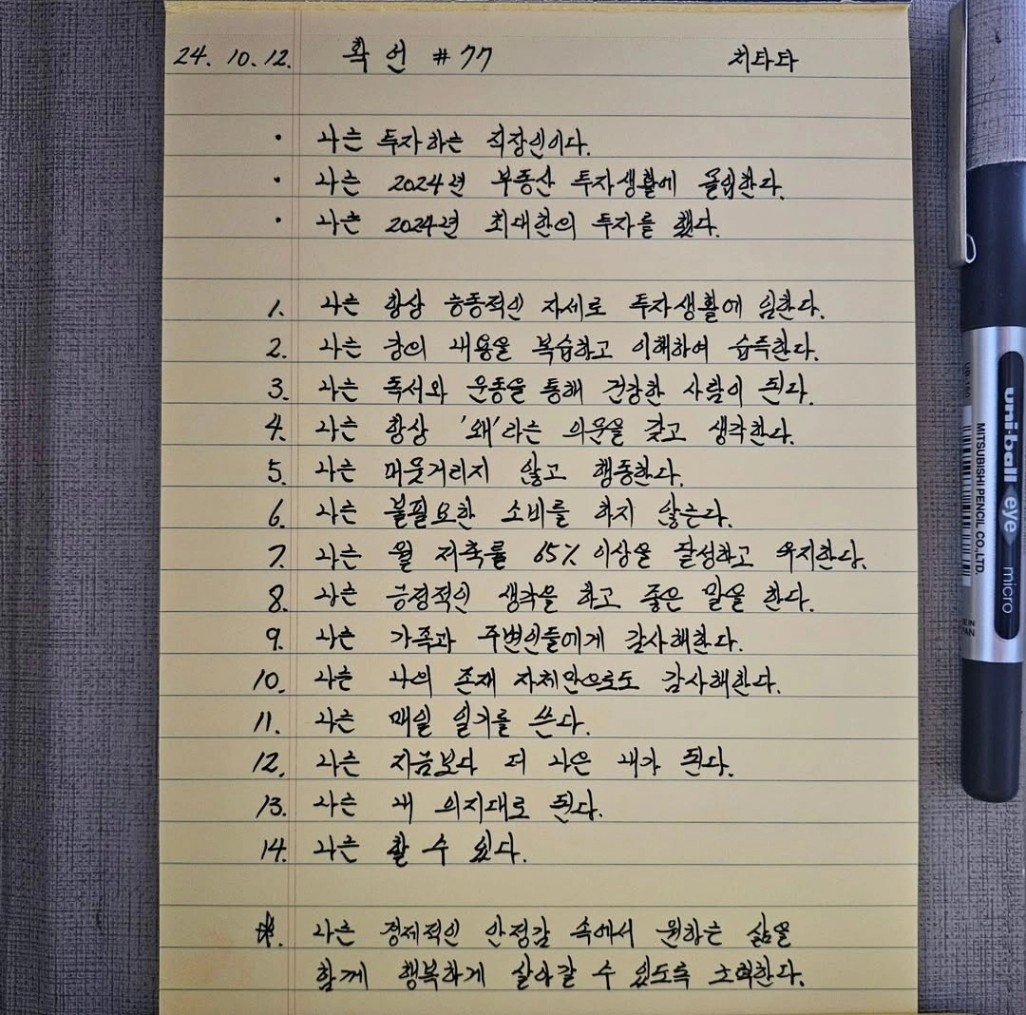 24. 10. 12. 확언 #77 치타타
· 나는 투자하는 직장인이다.
· 나는 2024년 부동산 투자생활에 몰입한다.
· 나는 2024년 최대한의 투자를 했다.
1. 나는 항상 능동적인 자세로 투자생활에 임한다.
2. 나는 강의 내용을 복습하고 이해하여 습득한다.
3. 나는 독서와 운동을 통해 건강한 사람이 된다.
4. 나는 항상 '왜'라는 의문을 갖고 생각한다.
5. 나는 머뭇거리지 않고 행동한다.
6. 나는 불필요한 소비를 하지 않는다.
7. 나는 월 저축률 65% 이상을 달성하고 유지한다.
8. 나는 긍정적인 생각을 하고 좋은 말을 한다.
9. 나는 가족과 주변인들에게 감사해한다.
10. 나는 나의 존재 자체만으로도 감사해한다.
11. 나는 매일 일기를 쓴다.
12. 나는 지금보다 더 나은 내가 된다.
13. 나는 내 의지대로 된다.
14. 나는 할 수 있다.
※. 나는 경제적인 안정감 속에서 원하는 삶을
함께 행복하게 살아갈 수 있도록 노력한다.
uni-ball eye micro
MITSUBISHI PENCIL CO., LTD.